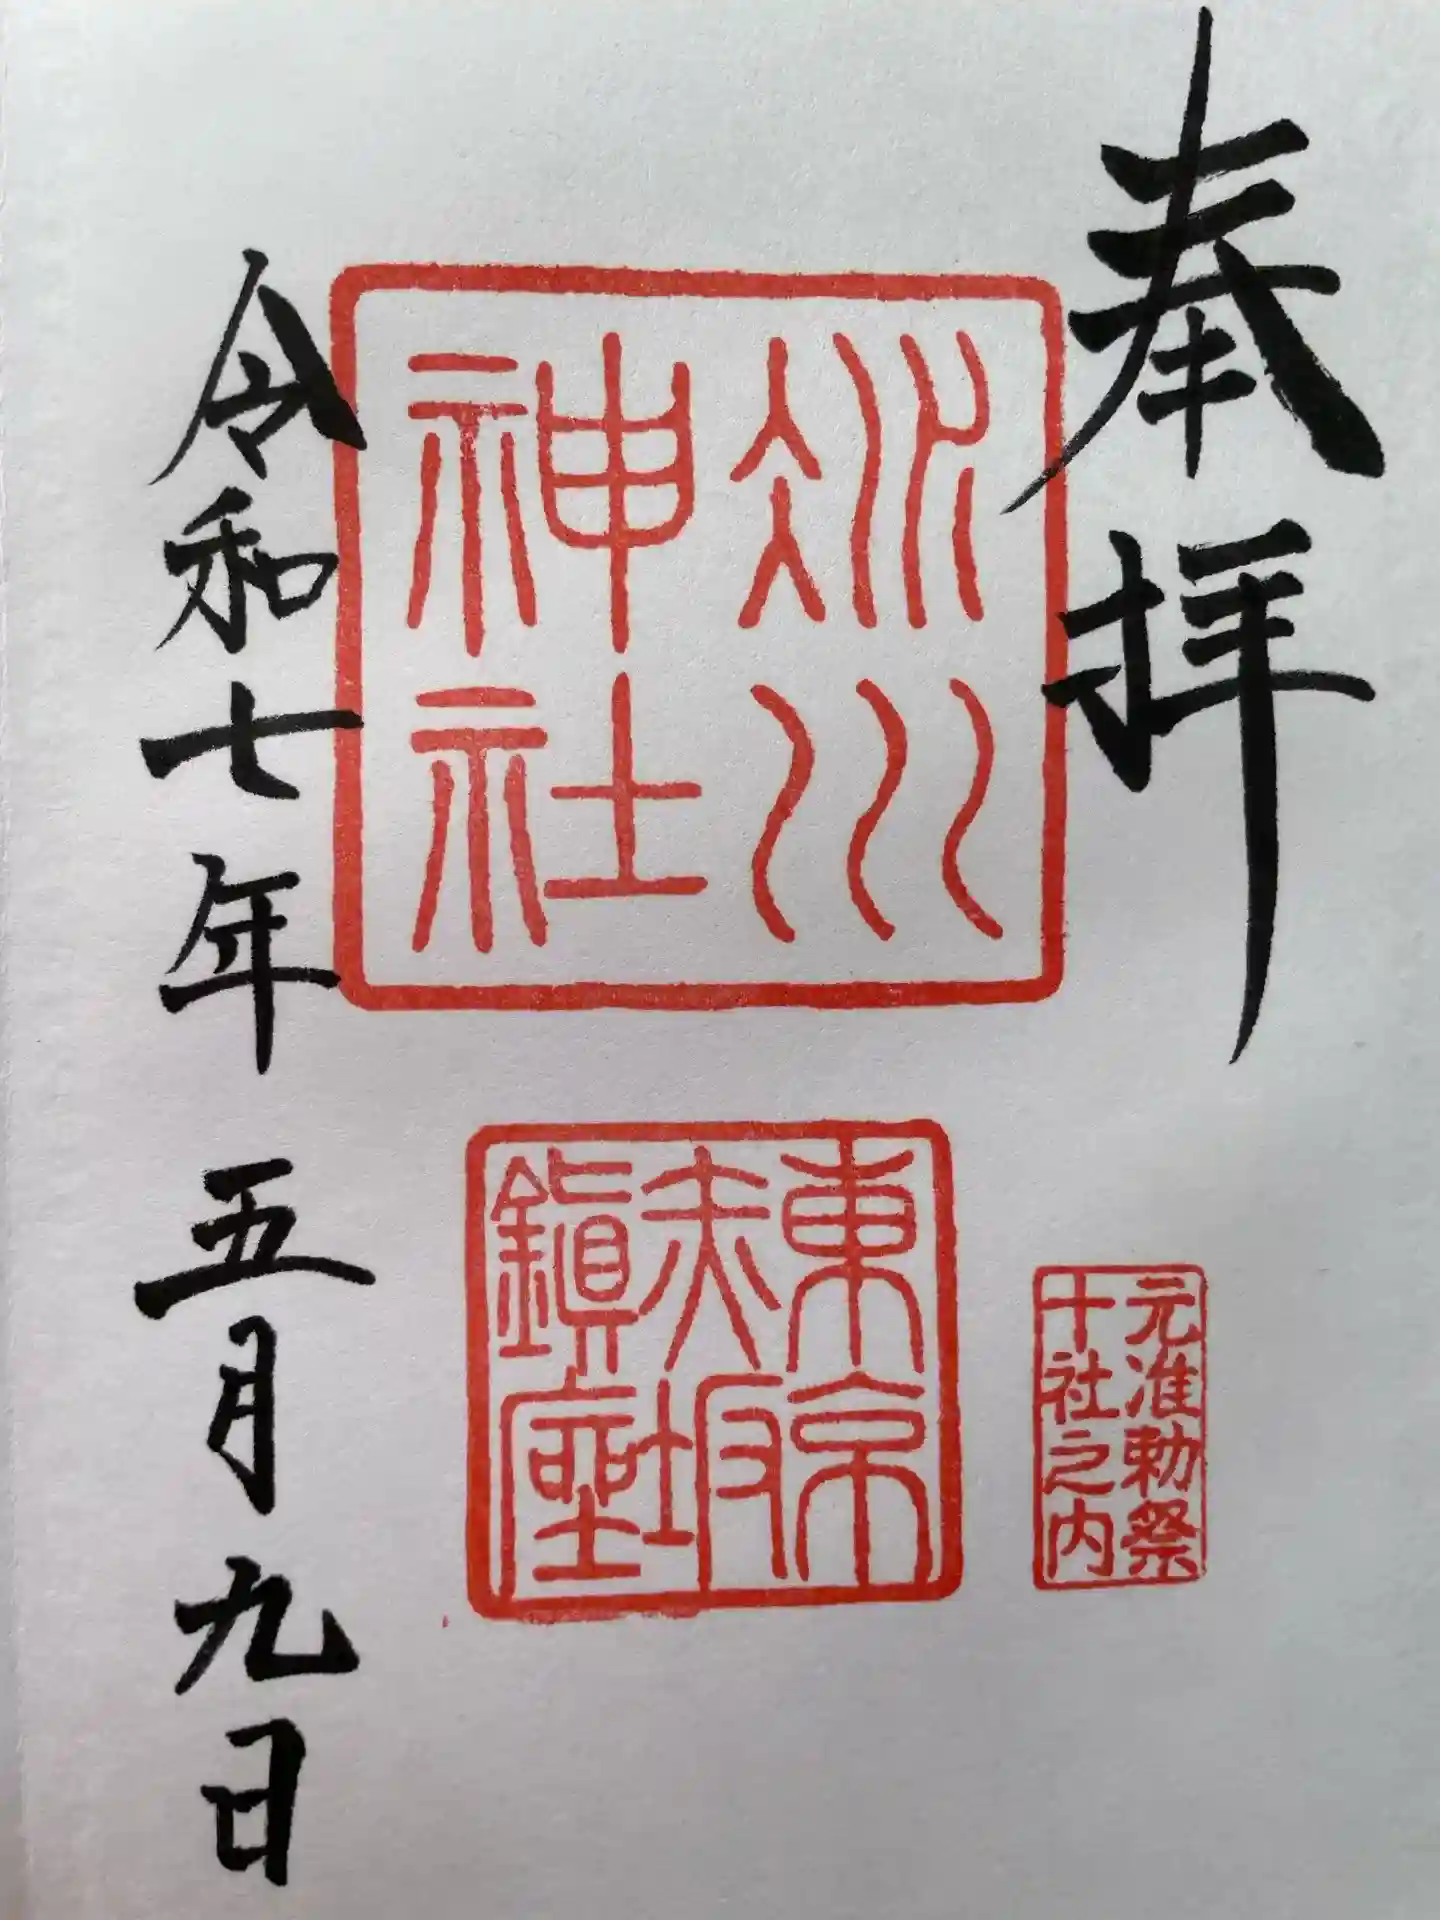 奉拝
氷川
神社
東京
赤坂
鎮座
元准勅祭
十社之内
令和七年五月九日